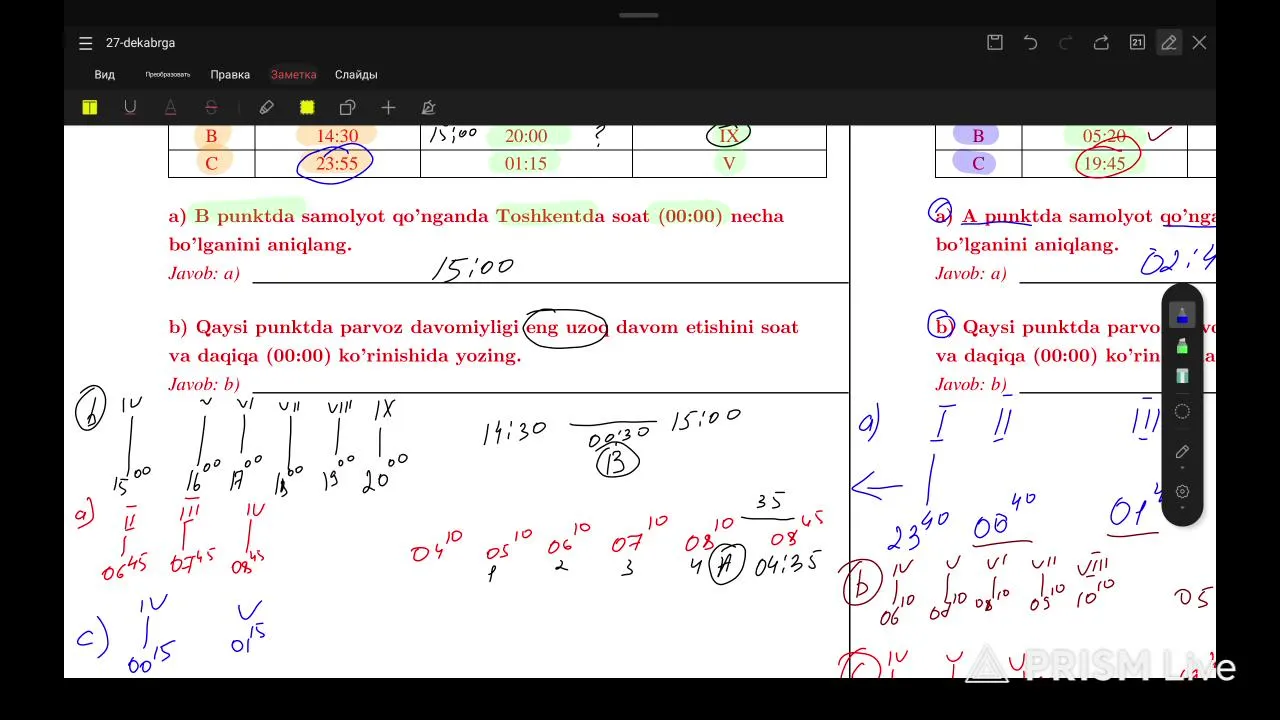 27-dekabrga
21
Вид Преобразовать Правка Заметка Слайды
B 14:30 15:00 20:00 ? IX
C 23:55 01:15 V
a) B punktda samolyot qo'nganda Toshkentda soat (00:00) necha
bo'lganini aniqlang.
Javob: a) 15:00
b) Qaysi punktda parvoz davomiyligi eng uzoq davom etishini soat
va daqiqa (00:00) ko'rinishida yozing.
Javob: b)
b) IV V VI VII VIII IX
15 00 16 00 17 00 18 00 19 00 20 00
14:30 00:30 15:00
B
a) II III IV
06 45 07 45 08 45
35
04 10 05 10 06 10 07 10 08 10 08 45
1 2 3 4 A 04:35
c) IV V
00 15 01 15
B 05:20
C 19:45
a) A punktda samolyot
bo'lganini aniqlang.
Javob: a) 02:4
b) Qaysi punktda
va daqiqa (00:00)
Javob: b)
a) I II III
23 40 00 40 01 4
b IV V VI VII VIII
06 10 10 10
05
IV V
PRISM Live